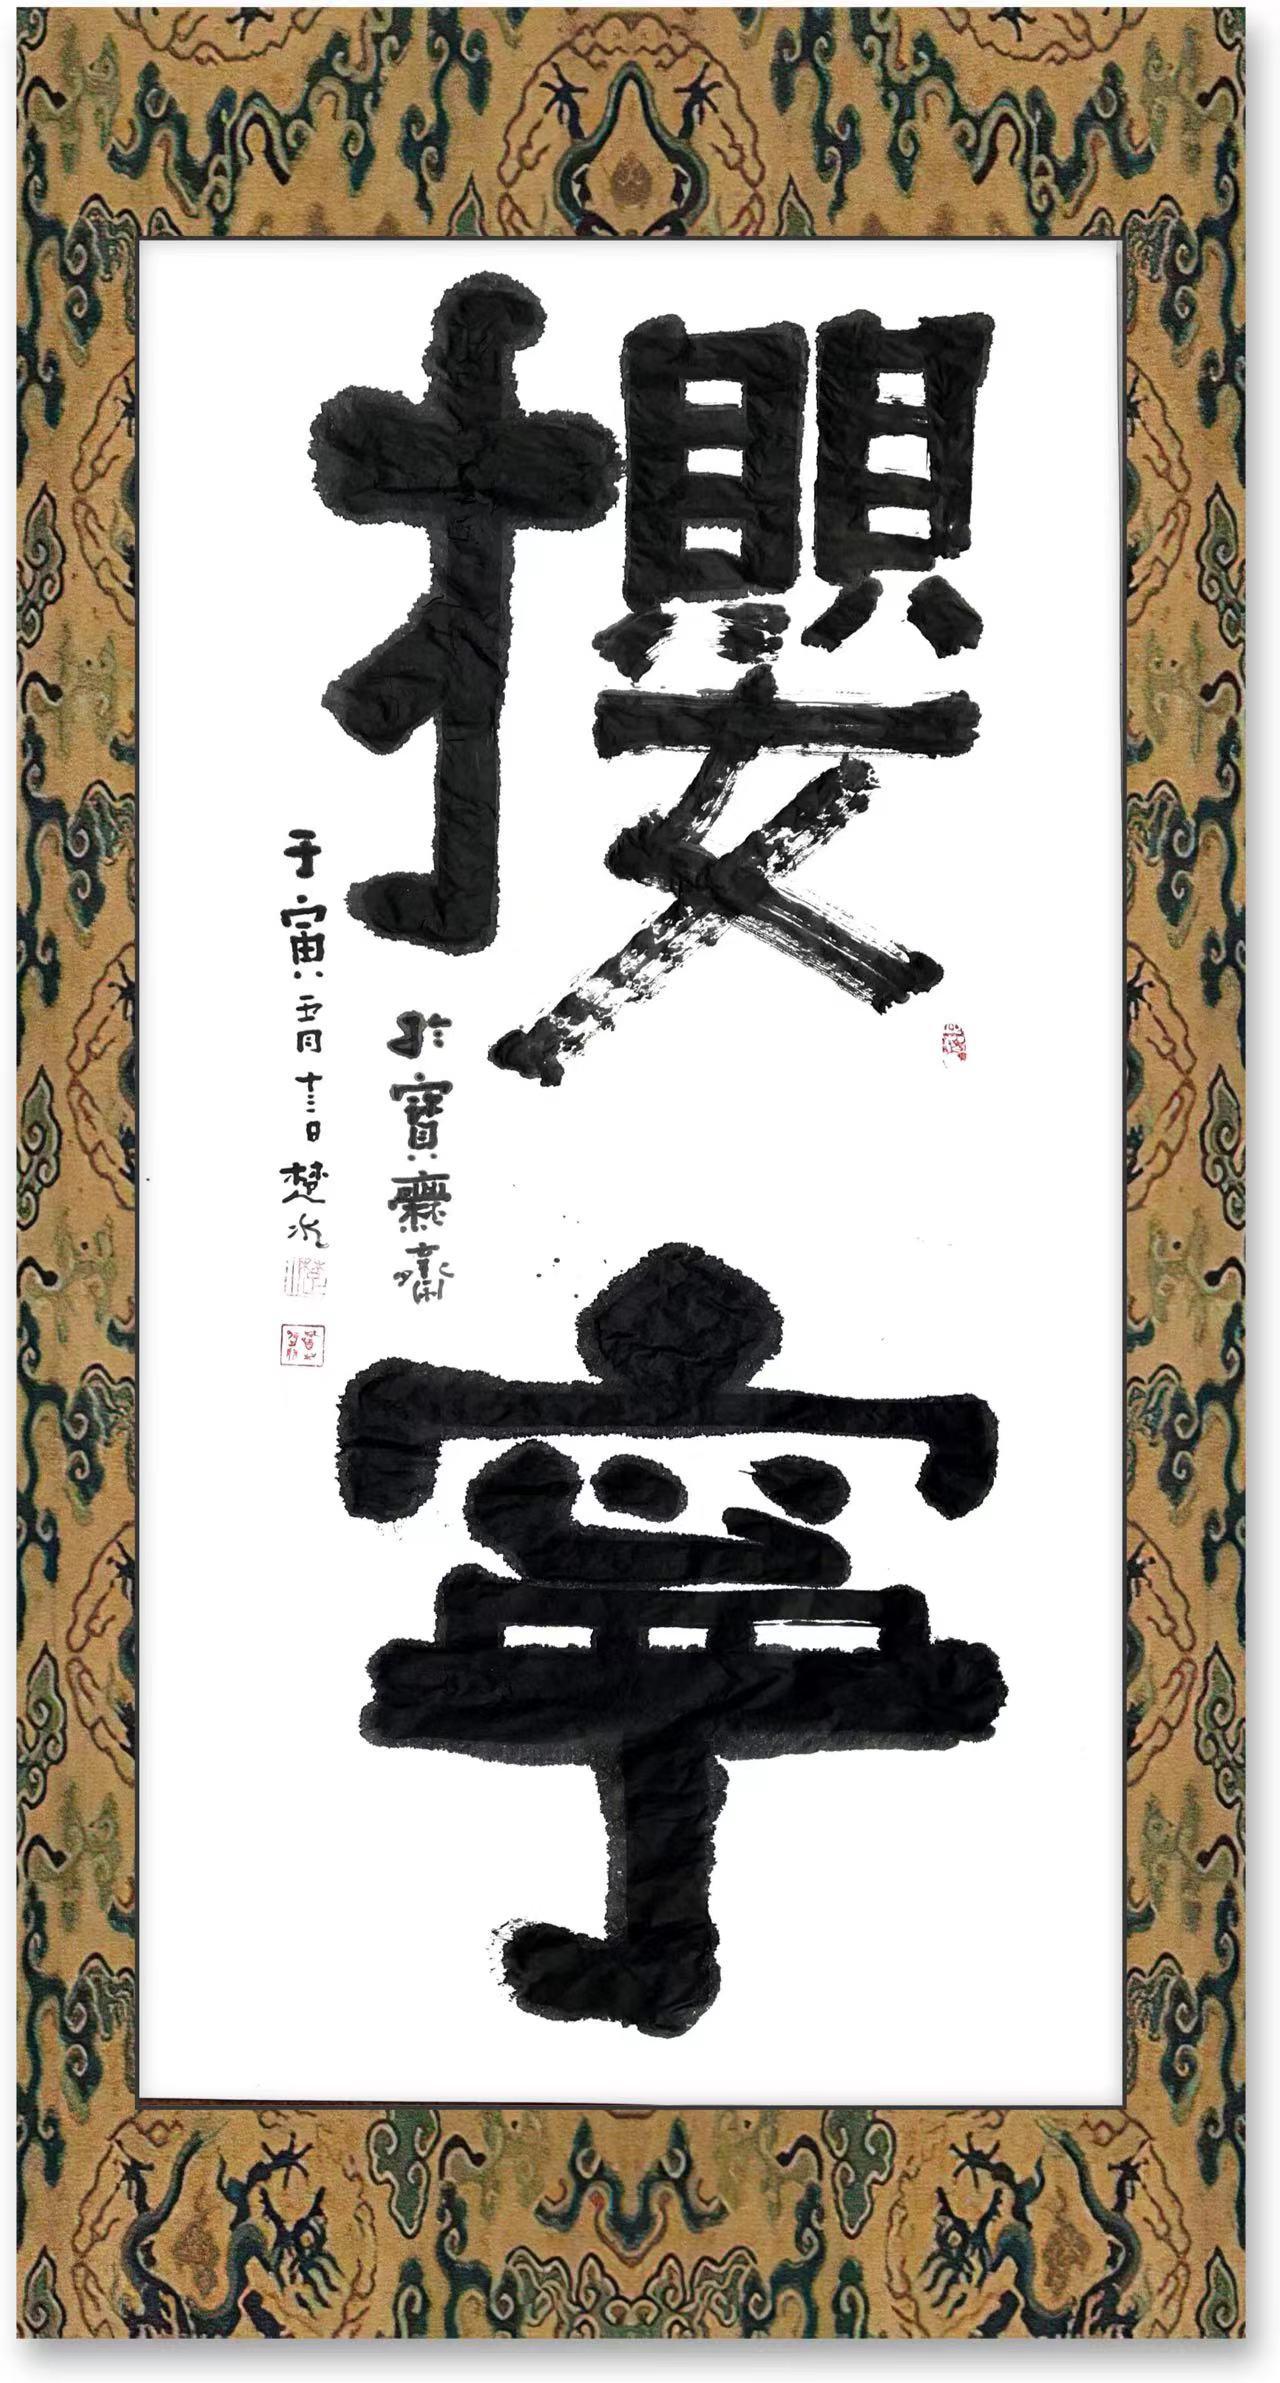 攖寧
於寶齋
壬寅五月十三日楚